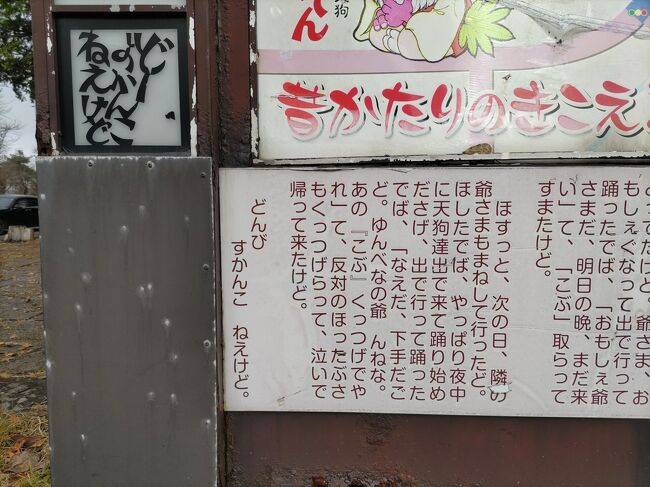 どー
びん
すかんこ
ねえけど
天狗
さん
昔かたりのきこえる
どってたけど。爺さま、お
もしぇぐなって出で行って
踊ったでば、「おもしぇ爺
さまだ、明日の晩、まだ来
い」て、「こぶ」取らって
すまたけど。
ほすっと、次の日、隣の
爺さまもまねして行ったど。
ほしたでば、やっぱり夜中
に天狗達出で来て踊り始め
ださげ、出で行って踊った
でば、「なえだ、下手だご
ど。ゆんべなの爺　んねな。
あの『こぶ』くっつげでや
れ」て、反対のほったぶさ
もくっつげらって、泣いで
帰って来たけど。
どんび
すかんこ　ねえけど。